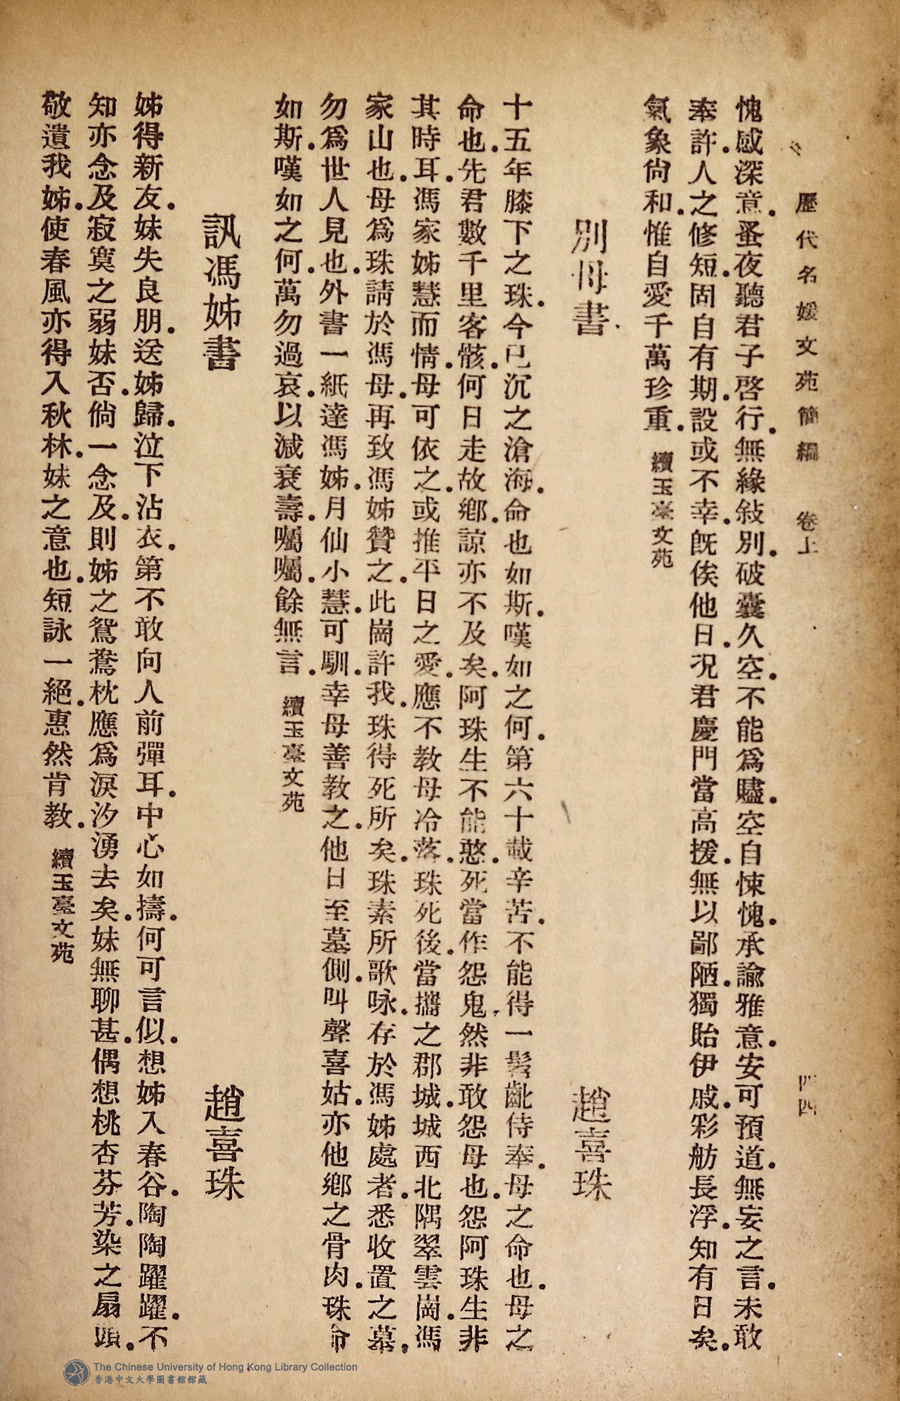 歷代名媛文苑簡編　卷上　四四
愧感深意。蚤夜聽君子啓行。無緣敍別。破囊久空。不能爲贐。空自悚愧。承諭雅意。安可預道。無妄之言。未敢
奉許。人之修短。固自有期。設或不幸。旣俟他日。況君慶門當高援。無以鄙陋。獨貽伊戚。彩舫長浮。知有日矣。
氣象尙和。惟自愛千萬珍重。續玉臺文苑
別母書　趙喜珠
十五年膝下之珠。今已沉之滄海。命也如斯。嘆如之何。第六十載辛苦。不能得一髫齔侍奉。母之命也。母之
命也。先君數千里客骸。何日走故鄉。諒亦不及矣。阿珠生不能憨。死當作怨鬼。然非敢怨母也。怨阿珠生非
其時耳。馮家姊慧而情。母可依之。或推平日之愛。應不教母冷落。珠死後。當攜之郡城。城西北隅翠雲崗。馮
家山也。母爲珠請於馮母。再致馮姊贊之。此崗許我。珠得死所矣。珠素所歌咏。存於馮姊處者。悉收置之墓。
勿爲世人見也。外書一紙達馮姊。月仙小慧。可馴。幸母善教之。他日至墓側。叫聲喜姑。亦他鄉之骨肉。珠命
如斯。嘆如之何。萬勿過哀。以減衰壽。囑囑。餘無言。續玉臺文苑
訊馮姊書　趙喜珠
姊得新友。妹失良朋。送姊歸。泣下沾衣。第不敢向人前彈耳。中心如擣。何可言似。想姊入春谷。陶陶躍躍。不
知亦念及寂寞之弱妹否。倘一念及。則姊之鴛鴦枕應爲淚汐湧去矣。妹無聊甚。偶想桃杏芬芳。染之扇頭。
敬遺我姊。使春風亦得入秋林。妹之意也。短詠一絕。惠然肯教。續玉臺文苑
The Chinese University of Hong Kong Library Collection
香港中文大學圖書館館藏